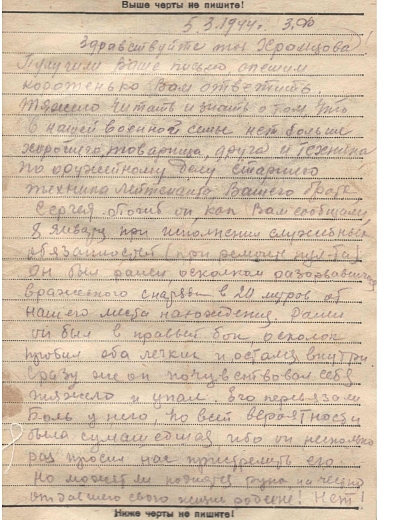 Выше черты не пишите!
5.3.1944г. З.Ф
Здравствуйте тов Храмцова!
Получили Ваше письмо спешим
коротенько Вам ответить.
Тяжело читать и знать о том что
в нашей военной семье нет больше
хорошего, товарища, друга и техника
по оружейному делу старшего
техника лейтенанта Вашего брата
Сергея. Погиб он как Вам сообщали
8 января при исполнении служебных
обязанностей (при ремонте пул-та)
Он был ранен осколком разорвавшегося
вражеского снаряда в 20 метров от
нашего места нахождения. Ранен
он был в правый бок осколок
пробил оба легких и остался внутри.
Сразу же он почувствовал себя
тяжело и упал. Его перевязали
Боль у него, по всей вероятности
была сумашедшая ибо он несколько
раз просил нас пристрелить его.
Но может ли поднятся рука на честно
отдавшего свою жизнь родине! Нет!
Ниже черты не пишите!